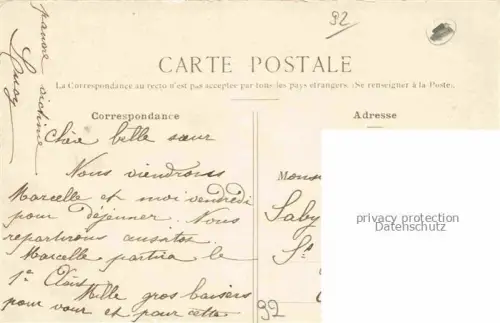 92
CARTE POSTALE
La Correspondance au recto n'est pas acceptée par tous les pays étrangers. (Se renseigner à la Poste).
Correspondance
Adresse
Chère belle sœur
Nous viendrons
Marcelle et moi vendredi
pour déjeuner. Nous
repartirons aussitôt.
Marcelle partira le
1e
Mille gros baisers
pour vous et pour cette
pauvre victime
Monsi
Saby
St
92
privacy protection
Datenschutz